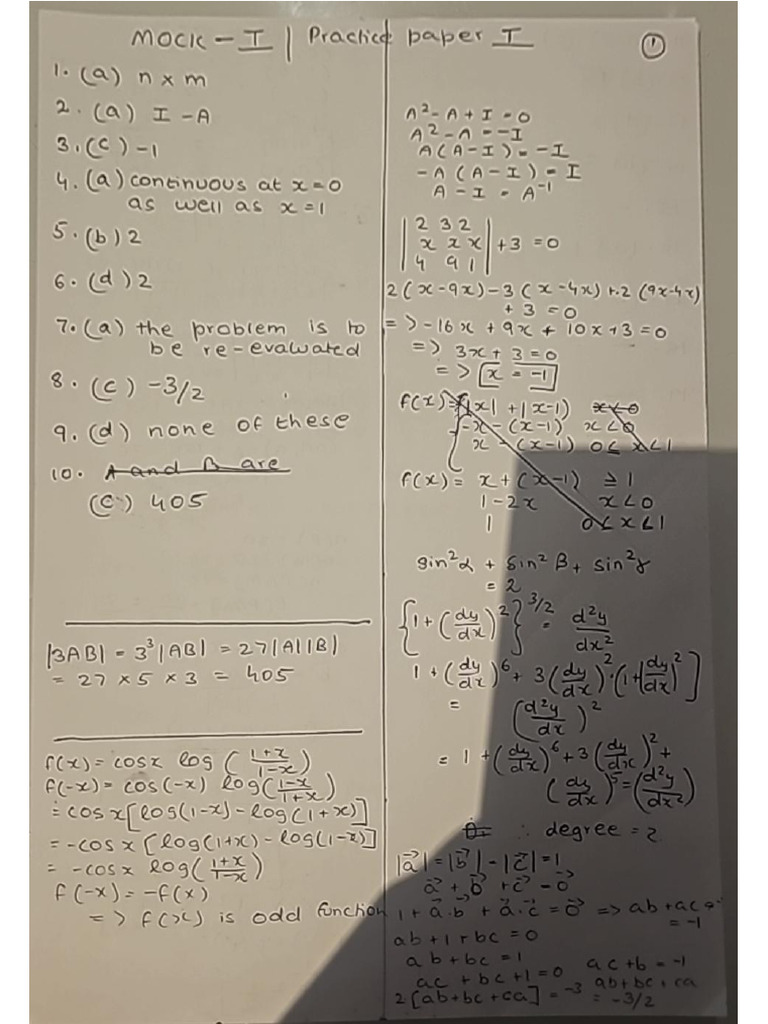 MOCK - I | Practice paper I
1
1. (a) n × m
2. (a) I - A
3. (c) -1
4. (a) continuous at x=0
as well as x=1
5. (b) 2
6. (d) 2
7. (a) the problem is to
be re-evaluated
8. (c) -3/2
9. (d) none of these
10. A and B are
(c) 405
|3AB| = 3³|AB| = 27|A||B|
= 27 × 5 × 3 = 405
f(x) = cosx log (1+x/1-x)
f(-x) = cos(-x) log(1-x/1+x)
= cosx[log(1-x) - log(1+x)]
= -cosx [log(1+x) - log(1-x)]
= -cosx log(1+x/1-x)
f(-x) = -f(x)
=> f(x) is odd function
A² - A + I = 0
A² - A = -I
A(A-I) = -I
-A(A-I) = I
A - I = A⁻¹
|2 3 2|
|x x x| + 3 = 0
|4 9 1|
2(x-9x) - 3(x-4x) + 2(9x-4x)
+ 3 = 0
=> -16x + 9x + 10x + 3 = 0
=> 3x + 3 = 0
=> x = -1
f(x) = |x| + |x-1| x<0
-x - (x-1) x<0
x (x-1) 0≤x<1
f(x) = x + (x-1) ≥ 1
1-2x x<0
1 0<x<1
sin²α + sin²β + sin²γ
= 2
{1 + (dy/dx)²}^3/2 = d²y/dx²
1 + (dy/dx)⁶ + 3(dy/dx)²·(1+(dy/dx)²]
= (d²y/dx)²
= 1 + (dy/dx)⁶ + 3(dy/dx)² +
(dy/dx)⁵ = (d²y/dx²)
∴ degree = 2
|a⃗| = |b⃗| - |c⃗| = 1
a⃗ + b⃗ + c⃗ = 0⃗
1 + a⃗.b⃗ + a⃗.c⃗ = 0⃗ => ab + ac
= -1
ab + 1 + bc = 0
ab + bc = 1
ac + bc + 1 = 0 ac + b = -1
2[ab+bc+ca] = -3 ab+bc+ca
= -3/2